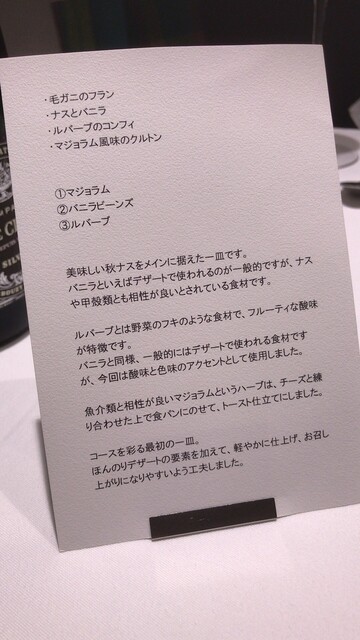 ・毛ガニのフラン
・ナスとバニラ
・ルバーブのコンフィ
・マジョラム風味のクルトン
①マジョラム
②バニラビーンズ
③ルバーブ
美味しい秋ナスをメインに据えた一皿です。
バニラといえばデザートで使われるのが一般的ですが、ナス
や甲殻類とも相性が良いとされている食材です。
ルバーブとは野菜のフキのような食材で、フルーティな酸味
が特徴です。
バニラと同様、一般的にはデザートで使われる食材です
が、今回は酸味と色味のアクセントとして使用しました。
魚介類と相性が良いマジョラムというハーブは、チーズと練
り合わせた上で食パンにのせて、トースト仕立てにしました。
コースを彩る最初の一皿。
ほんのりデザートの要素を加えて、軽やかに仕上げ、お召し
上がりになりやすいよう工夫しました。